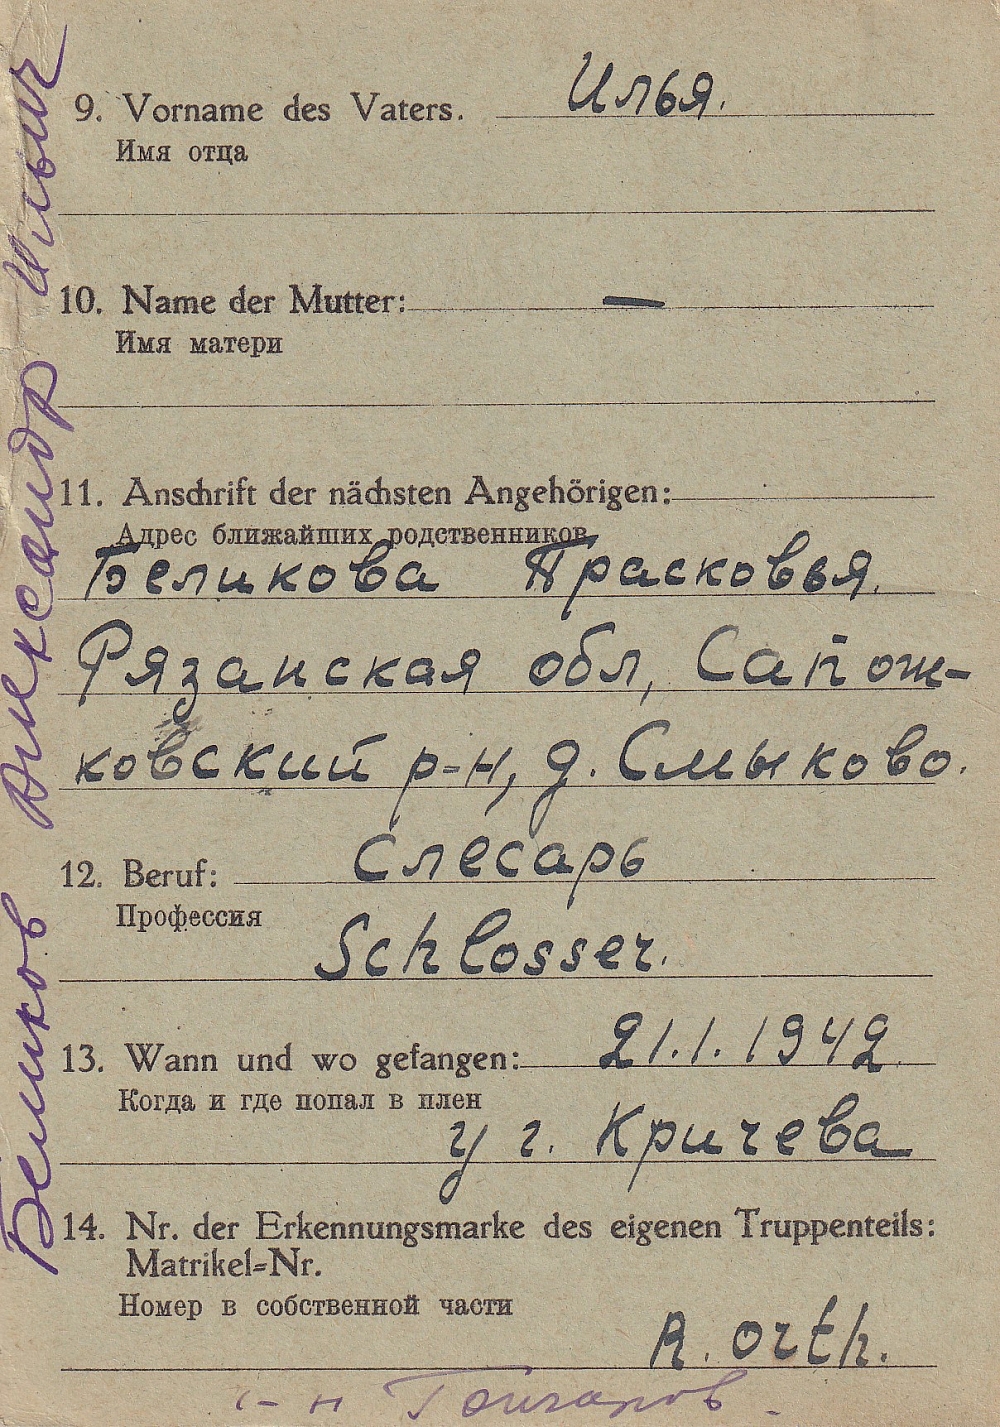 Беликов Александр Ильич
9. Vorname des Vaters. Илья.
Имя отца
10. Name der Mutter: —
Имя матери
11. Anschrift der nächsten Angehörigen:
Адрес ближайших родственников
Беликова Прасковья.
Рязанская обл, Сапож-
ковский р-н, д. Смыково.
12. Beruf: Слесарь
Профессия
Schlosser.
13. Wann und wo gefangen: 21.1.1942
Когда и где попал в плен
у г. Кричева
14. Nr. der Erkennungsmarke des eigenen Truppenteils:
Matrikel=Nr.
Номер в собственной части
R. orth.
с-н Гончаров